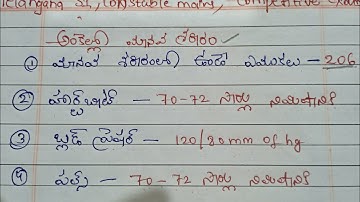 Telangana SI, constable mains, competitive exam
అంకెల్లో మానవ శరీరం
① మానవ శరీరంలో ఉండే ఎముకలు - 206
② హార్ట్ బీట్ - 70-72 సార్లు నిమిషానికి
③ బ్లడ్ ప్రెషర్ - 120/80 mm of hg
④ పల్స్ - 70-72 సార్లు నిమిషానికి